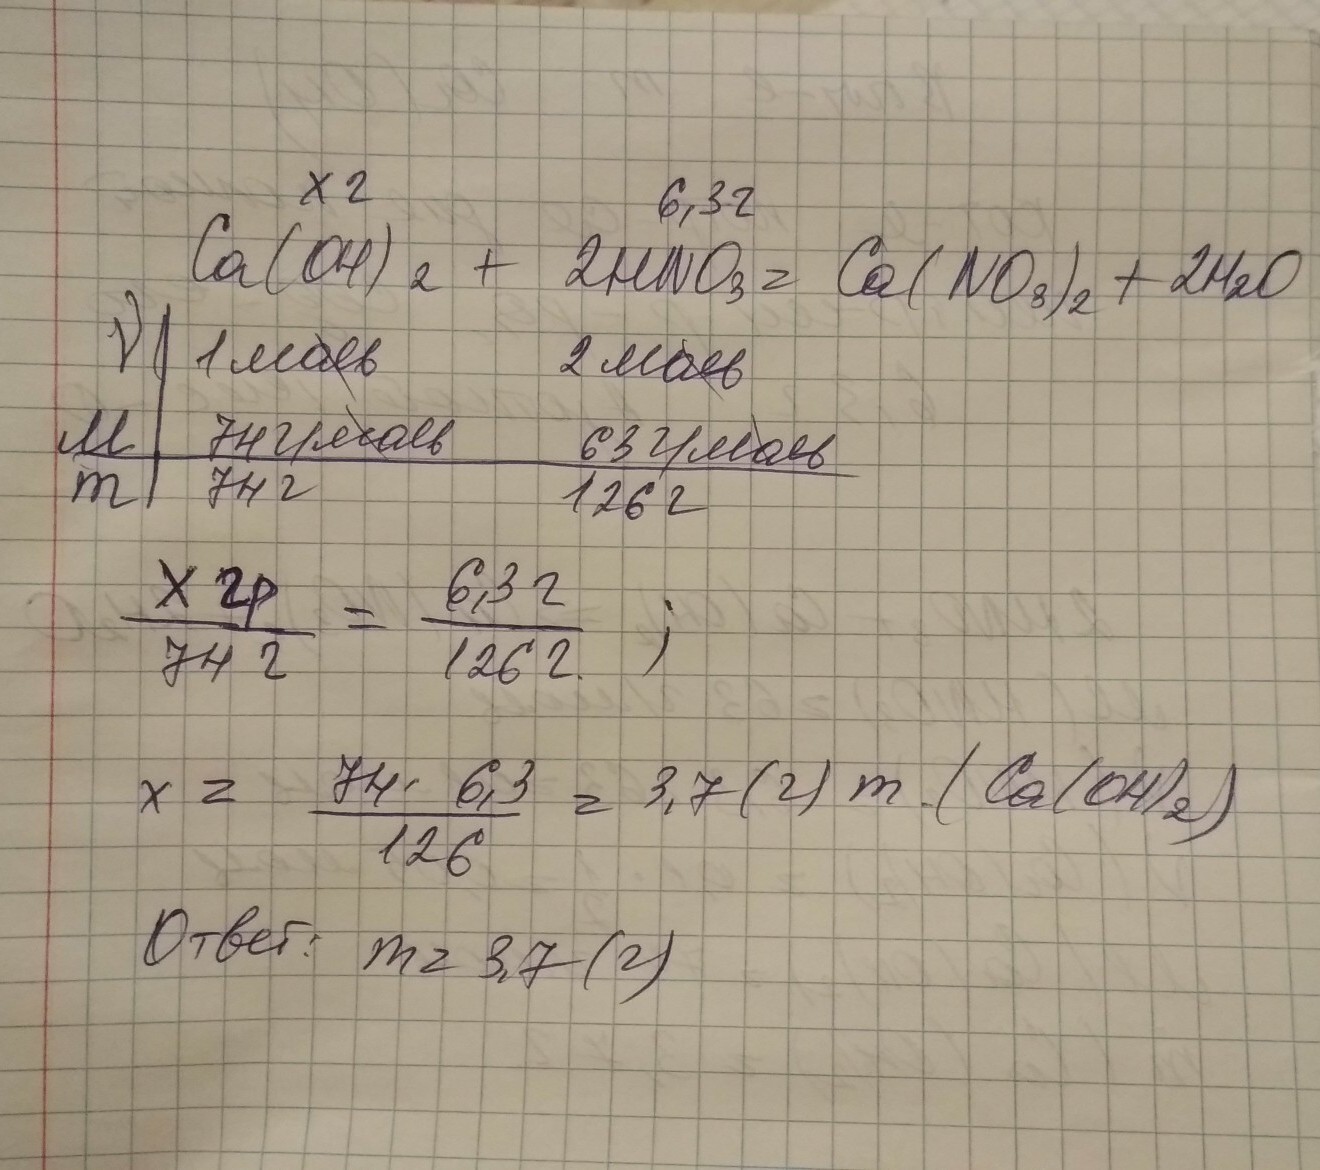 x г 6,3г
Ca(OH)2 + 2HNO3 = Ca(NO3)2 + 2H2O
ν 1моль 2моль
M 74г/моль 63г/моль
m 74г 126г
x гр / 74 г = 6,3 г / 126 г. ;
x = 74 · 6,3 / 126 = 3,7 (г) m (Ca(OH)2)
Ответ: m = 3,7 (г)